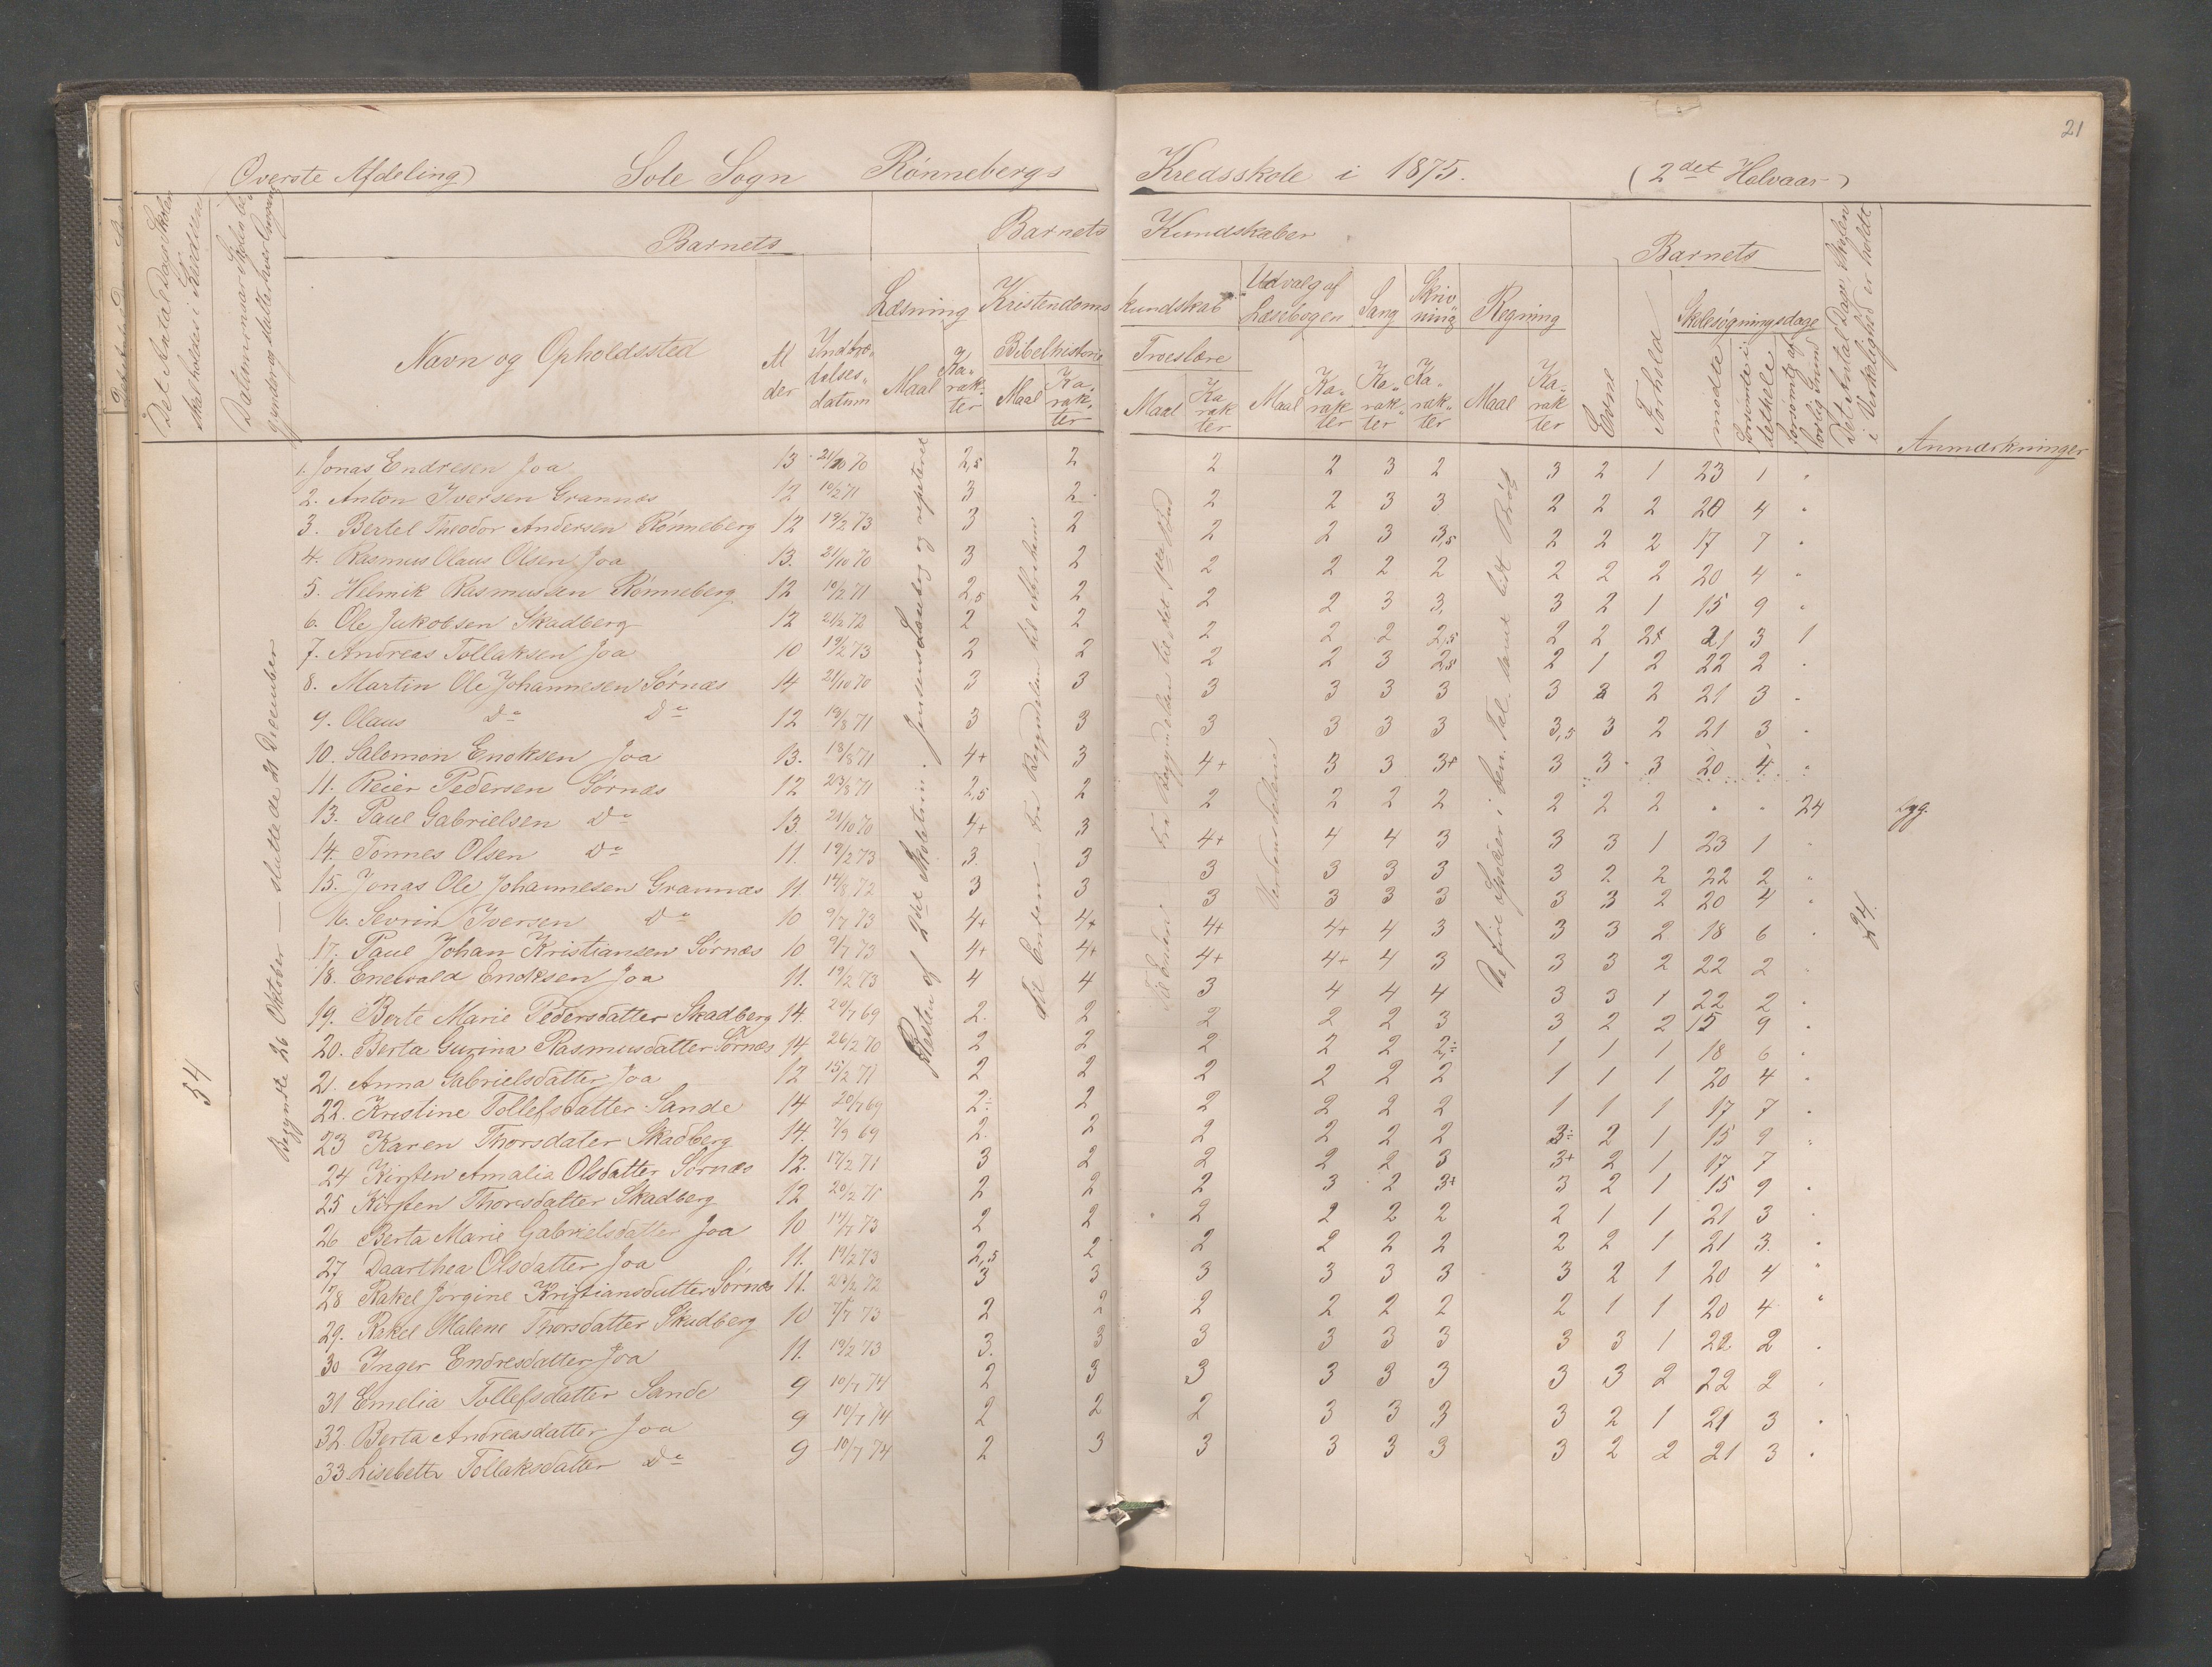 21
(Øverste Afdeling) Sole Sogn Rønnebergs Kredsskole i 1875. (2det Halvaar)
Det Antal Dage Skolen skal holdes i Kredsen
Datum naar Skolen begynder og slutter
Barnets
Barnets Kundskaber
Barnets
Det Antal Dage Skolen i Virkelighed er holdt
Anmærkninger
Navn og Opholdssted
Alder
Indtrædelsesdatum
Læsning
Kristendomskundskab
Udvalg af Læsebogen
Sang
Skrivning
Regning
Evne
Forhold
Skolesøgningsdage
Bibelhistorie
Troeslære
Maal Karakter Maal Karakter Maal Karakter Maal Karakter Karakter Karakter Maal Karakter
mødte
forsømte i det hele
forsømte af lovlig Grund
54
Begyndte 26 Oktober — sluttede 21 December
Resten af 2det Skoletrin. Jensens Læsebog og repeteret
Fra Begyndelsen til Abraham
Til Enden
Fra Begyndelsen til det Bud
Til Enden
Verdensdelene
De fire Spesier i ben. Tal samt lidt Brøk
24.
1. Jonas Endresen Joa 13 21/10 70 2,5 2 2 2 3 2 3 2 1 23 1 "
2. Anton Iversen Grannæs 12 10/2 71 3 2 2 2 3 3 2 2 2 20 4 "
3. Bertel Theodor Andersen Rønneberg 12 19/2 73 3 2 2 2 3 3,5 2 2 2 17 7 "
4. Rasmus Olaus Olsen Joa 13. 21/10 70 3 2 2 2 2 2 2 2 2 20 4 "
5. Helmik Rasmussen Rønneberg 12 10/2 71 2,5 2 2 2 3 3 3 2 1 15 9 "
6. Ole Jakobsen Skadberg 12 21/2 72 2 2 2 2 2 2,5 2 2 2+ 21 3 1
7. Andreas Tollaksen Joa 10 19/2 73 2 2 2 2 3 2,5 2 1 2 22 2 "
8. Martin Ole Johannesen Sørnæs 14 21/10 70 3 3 3 3 3 3 3 3 2 21 3 "
9. Olaus Do Do 12 18/8 71 3 3 3 3 3 3 3,5 3 2 21 3 "
10. Salomon Enoksen Joa 13. 18/8 71 4+ 3 4+ 3 3 3+ 3 3 3 20 4 "
11. Reier Pedersen Sørnæs 12 23/8 71 2,5 2 2 2 2 2 2 2 2 " " 24 syg.
13. Paul Gabrielsen Do 13. 21/10 70 4+ 3 4+ 4 4 3 3 3 1 23 1 "
14. Tønnes Olsen Do 11. 19/2 73 3. 3 3 3 3 3 3 2 2 22 2 "
15. Jonas Ole Johannesen Grannæs 11 14/8 72 3 3 3 3 3 3 3 3 2 20 4 "
16. Sevrin Iversen Do 10 9/7 73 4+ 4+ 4+ 4+ 4 3 3 3 2 18 6 "
17. Paul Johan Kristiansen Sørnæs 10 9/7 73 4+ 4+ 4+ 4+ 4 3 3 3 2 22 2 "
18. Enevald Enoksen Joa 11. 19/2 73 4 4 3 4 4 4 3 3 1 22 2 "
19. Berte Marie Pedersdatter Skadberg 14. 20/7 69 2. 2 2 2 2 3 3 2 2 15 9 "
20. Berta Gurina Rasmusdatter Sørnæs 14 26/2 70 2 2 2 2 2 2÷ 1 1 1 18 6 "
21. Anna Gabrielsdatter Joa 12 15/2 71 2 2 2 2 2 2 1 1 1 20 4 "
22. Kristine Tollefsdatter Sande 14 20/7 69 2÷ 2 2 2 2 2 1 1 1 17 7 "
23 Karen Thorsdater Skadberg 14. 7/9 69 2. 2 2 2 2 2 3÷ 2 1 15 9 "
24 Kirsten Amalia Olsdatter Sørnæs 12. 17/2 71 3 2 2 2 2 3 3+ 2 1 17 7
25 Kirsten Thorsdatter Skadberg 12 20/2 71 2 2 2 3 2 3+ 3 2 1 15 9 "
26 Berta Marie Gabrielsdatter Joa 10 14/7 73 2 2 2 2 2 2 2 1 1 21 3 "
27 Daarthea Olsdatter Joa 11. 19/2 73 2,5 2 2 2 2 2 2 2 1 21 3. "
28 Rakel Jørgine Kristiansdatter Sørnæs 11. 23/2 72 3 3 3 3 3 3 3 2 1 20 4 "
29. Rakel Malene Thorsdatter Skadberg 10 7/7 73 2 2 2 2 2 2 2 1 1 20 4 "
30 Inger Endresdatter Joa 11. 19/2 73 3. 3 3 3 3 3 3 3 1 22 2 "
31 Emelia Tollefsdatter Sande 9 10/7 74 2 3 3 3 3 3 3 3 2 22 2 "
32. Berta Andreasdatter Joa 9 10/7 74 2 2 2 3 3 3 3 2 1 21 3 "
33. Lisebeth Tollaksdatter Do 9 10/7 74 2 3 3 3 3 3 3 2 2 21 3 "